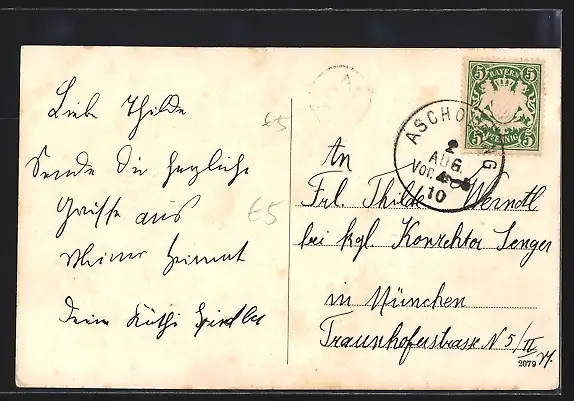 Liebe Thilde
Sende Dir herzliche
Grüsse aus
Meiner Heimat
Deine Käthi
£5
£5
5 BAYERN 5
5 PFENNIG 5
ASCHO
2
AUG.
VOR.
10
An
Frl. Thilde Werndl
bei kgl. Konrektor Senger
in München
Fraunhoferstrasse N 5/II
2079